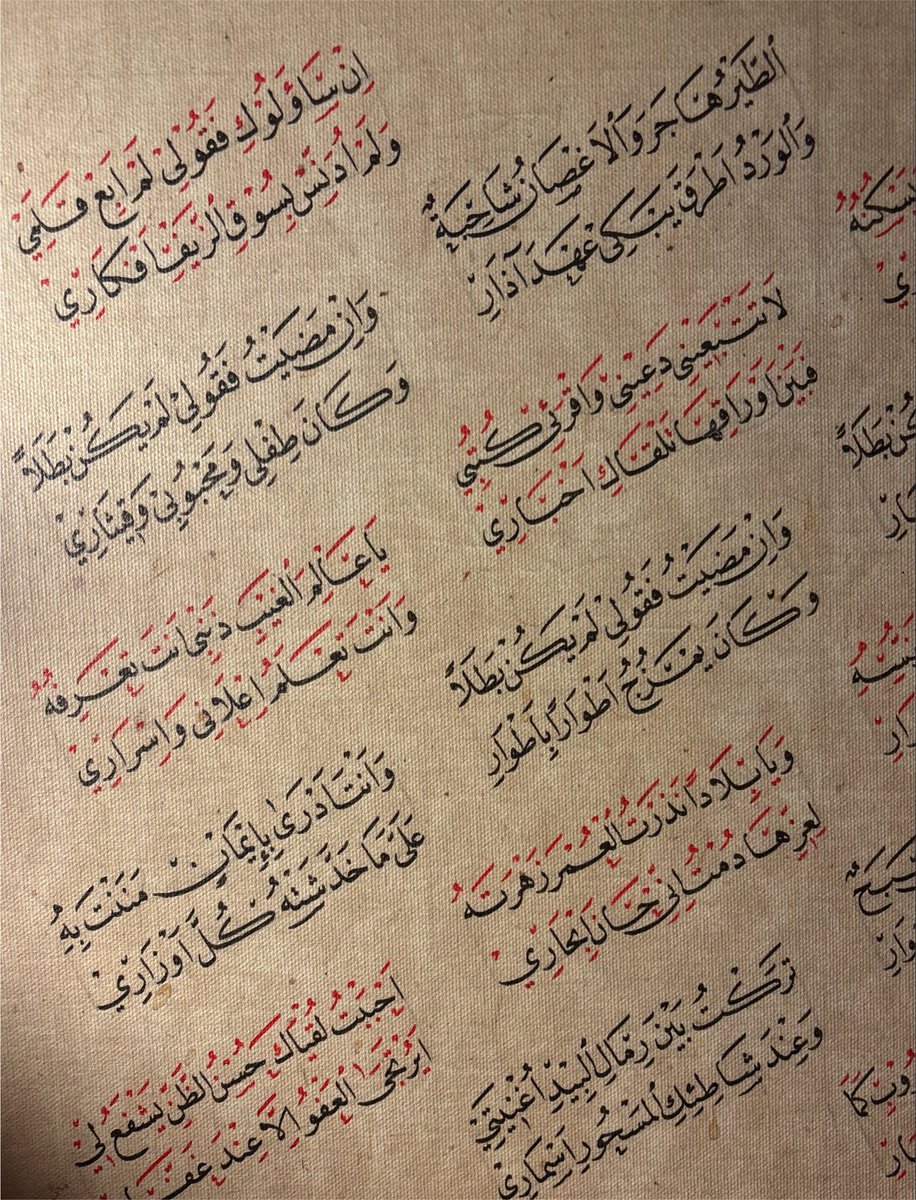 بَطَلاً
اَلطَّيْرُ هَاجَرَ وَالاَغْصَانُ شَاحِبَةٌ
وَالْوَرْدُ اَطْرَقَ يَبْكِي عَهْدَ آذَارِ
لَا تَتْبَعِيْنِي دَعِيْنِي وَاقْرَئِي كُتُبِي
فَبَيْنَ اَوْرَاقِهَا تَلْقَاكِ اَخْبَارِيْ
وَاِنْ مَضَيْتُ فَقُوْلِي لَمْ يَكُنْ بَطَلاً
وَكَانَ يَمْزُجُ اَطْوَاراً بِاَطْوَارِ
وَيَا بِلَاداً نَذَرْتُ الْعُمْرَ زَهْرَتَهُ
لِعِزِّهَا دُمْتِ اِنِّي حَانَ اِبْحَارِيْ
تَرَكْتُ بَيْنَ رِمَالِ الْبِيْدِ اُغْنِيَتِيْ
وَعِنْدَ شَاطِئِكِ الْمَسْحُوْرِ اَسْمَارِيْ
اِنْ سَاءَلُوْكِ فَقُوْلِيْ لَمْ اَبِعْ قَلَمِيْ
وَلَمْ اُدَنِّسْ بِسُوْقِ الزَّيْفِ اَفْكَارِيْ
وَاِنْ مَضَيْتُ فَقُوْلِيْ لَمْ يَكُنْ بَطَلاً
وَكَانَ طِفْلِي وَمَحْبُوْبِيْ وَقِيْثَارِيْ
يَا عَالِمَ الْغَيْبِ ذَنْبِيْ اَنْتَ تَعْرِفُهُ
وَاَنْتَ تَعْلَمُ اِعْلَانِيْ وَاِسْرَارِيْ
وَاَنْتَ اَدْرَى بِاِيْمَانٍ مَنَنْتَ بِهِ
عَلَيَّ مَا خَدَشَتْهُ كُلُّ اَوْزَارِيْ
اَحْبَبْتُ لُقْيَاكَ حُسْنُ الظَّنِّ يَشْفَعُ لِيْ
اَيُرْتَجَى الْعَفْوُ اِلَّا عِنْدَ